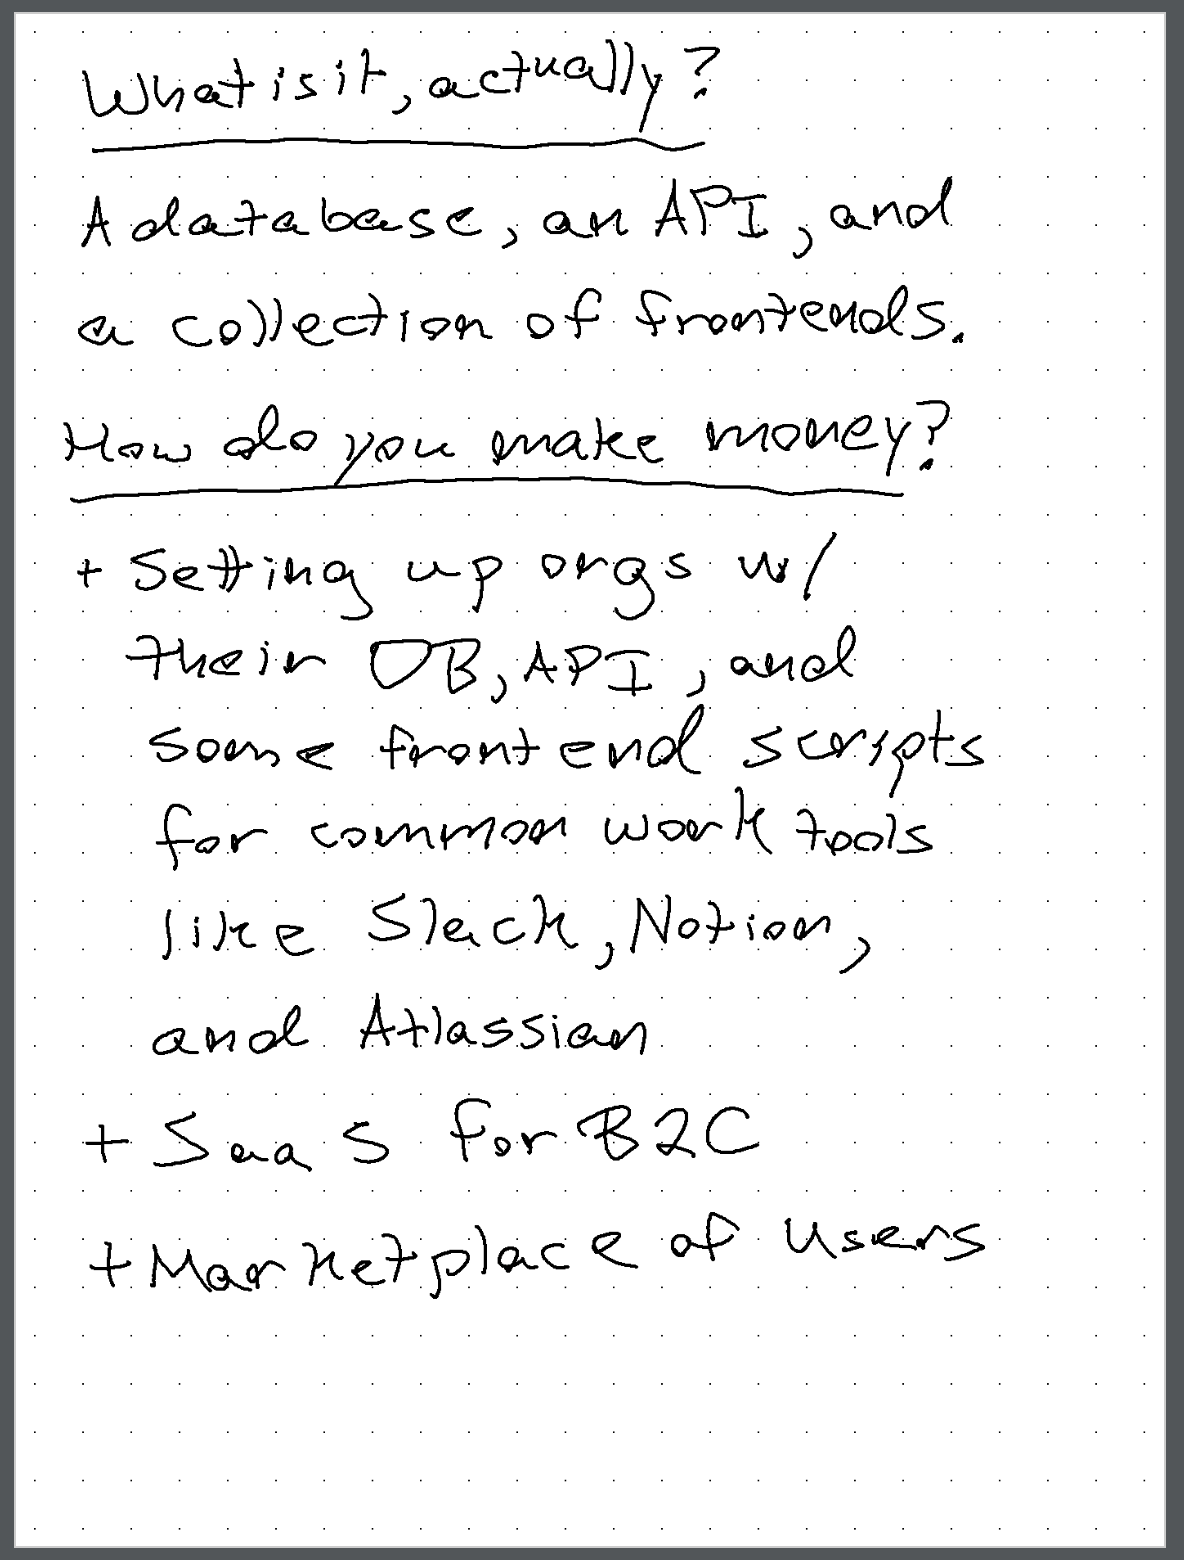 What is it, actually?
A database, an API, and
a collection of frontends.
How do you make money?
+ Setting up orgs w/
their DB, API, and
some frontend scripts
for common work tools
like Slack, Notion,
and Atlassian
+ SaaS for B2C
+ Marketplace of users